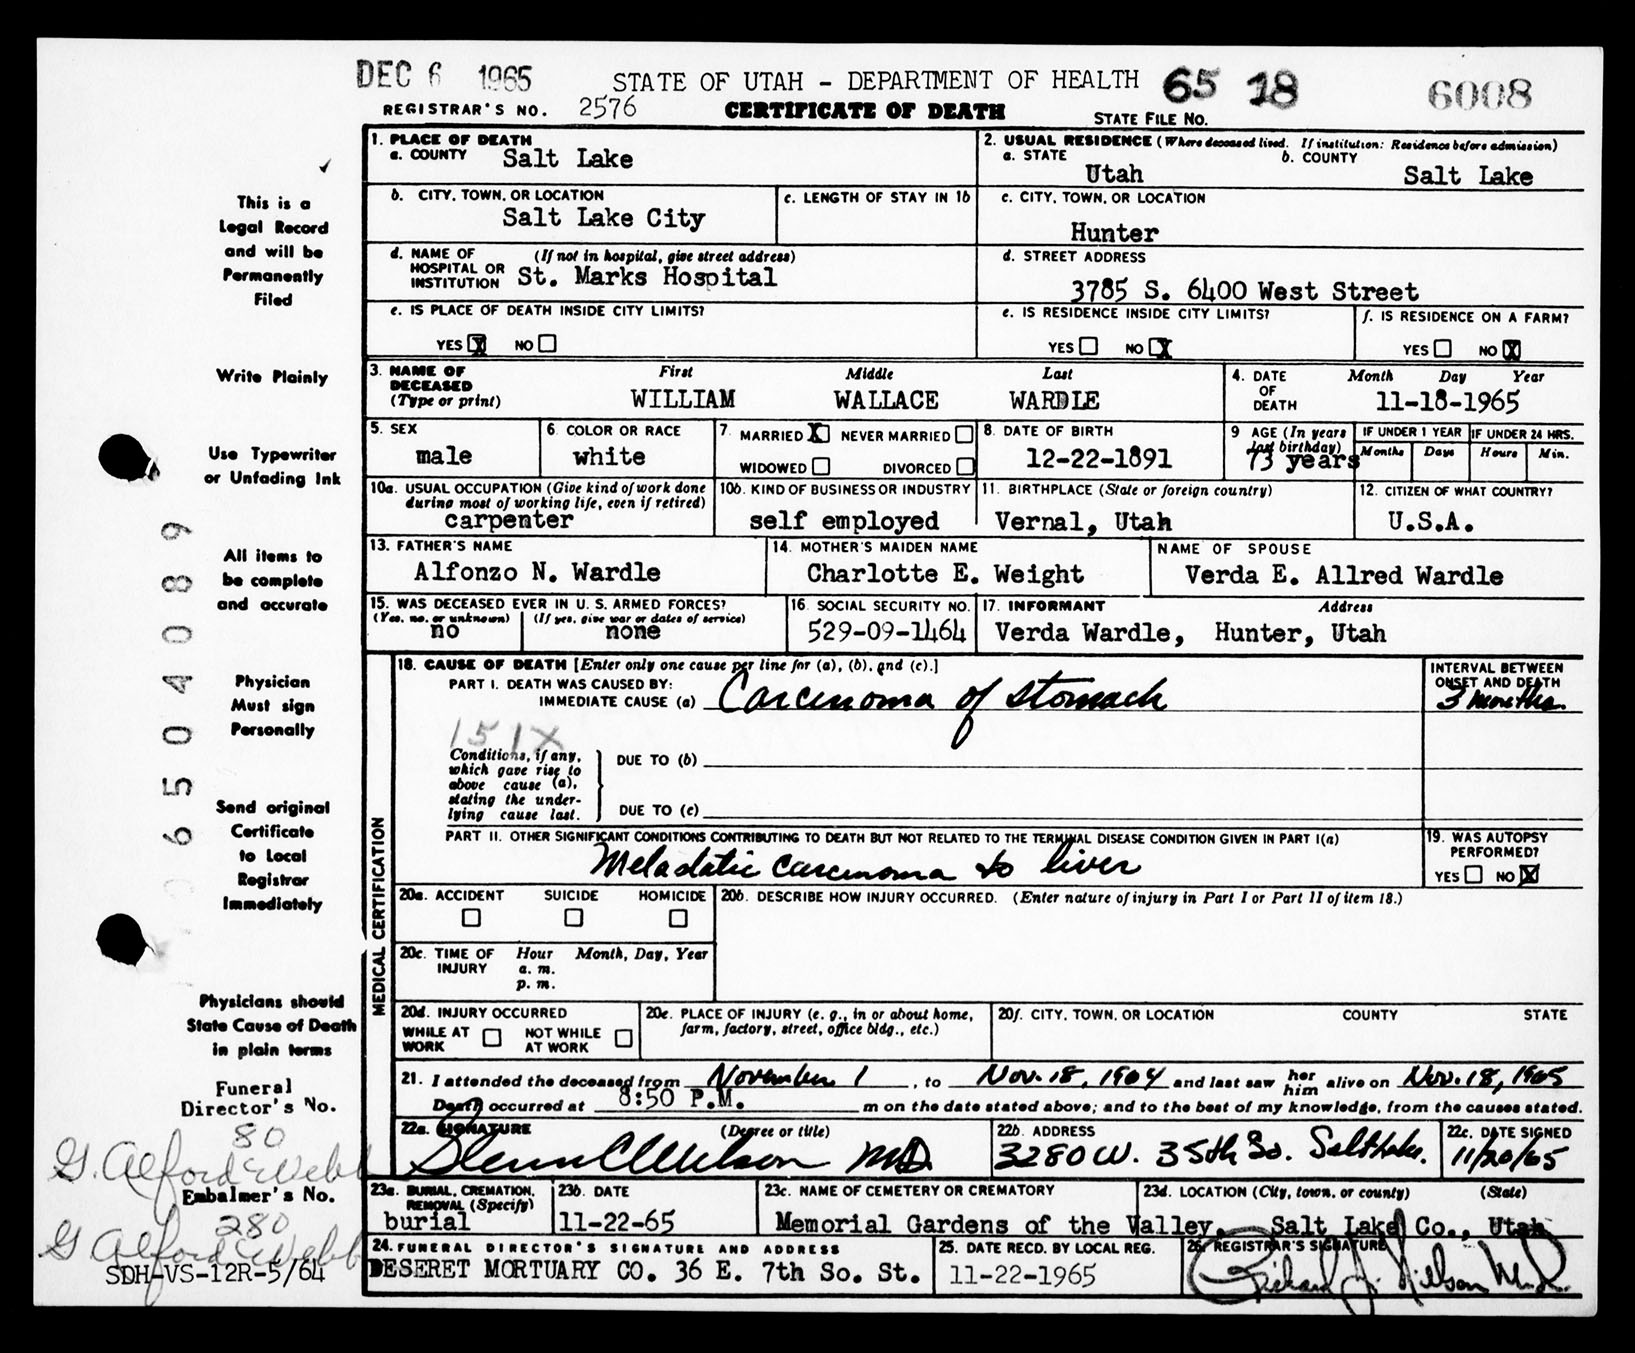 DEC 6 1965
STATE OF UTAH - DEPARTMENT OF HEALTH 65 18 6008
REGISTRAR'S NO. 2576 CERTIFICATE OF DEATH STATE FILE NO.
This is a
Legal Record
and will be
Permanently
Filed
Write Plainly
Use Typewriter
or Unfading Ink
All items to
be complete
and accurate
Physician
Must sign
Personally
Send original
Certificate
to Local
Registrar
Immediately
Physicians should
State Cause of Death
in plain terms
Funeral
Director's No.
80
G. Alford Webb
Embalmer's No.
280
G Alford Webb
SDH-VS-12R-5/64
65040089
1. PLACE OF DEATH
a. COUNTY Salt Lake
2. USUAL RESIDENCE (Where deceased lived. If institution: Residence before admission)
a. STATE Utah b. COUNTY Salt Lake
b. CITY, TOWN, OR LOCATION
Salt Lake City
c. LENGTH OF STAY IN 1b
c. CITY, TOWN, OR LOCATION
Hunter
d. NAME OF HOSPITAL OR INSTITUTION (If not in hospital, give street address)
St. Marks Hospital
d. STREET ADDRESS
3785 S. 6400 West Street
e. IS PLACE OF DEATH INSIDE CITY LIMITS?
YES X NO
e. IS RESIDENCE INSIDE CITY LIMITS?
YES NO X
f. IS RESIDENCE ON A FARM?
YES NO X
3. NAME OF DECEASED (Type or print)
First Middle Last
WILLIAM WALLACE WARDLE
4. DATE OF DEATH Month Day Year
11-18-1965
5. SEX
male
6. COLOR OR RACE
white
7. MARRIED X NEVER MARRIED
WIDOWED DIVORCED
8. DATE OF BIRTH
12-22-1891
9 AGE (In years last birthday)
73 years
IF UNDER 1 YEAR IF UNDER 24 HRS.
Months Days Hours Min.
10a. USUAL OCCUPATION (Give kind of work done during most of working life, even if retired)
carpenter
10b. KIND OF BUSINESS OR INDUSTRY
self employed
11. BIRTHPLACE (State or foreign country)
Vernal, Utah
12. CITIZEN OF WHAT COUNTRY?
U.S.A.
13. FATHER'S NAME
Alfonzo N. Wardle
14. MOTHER'S MAIDEN NAME
Charlotte E. Weight
NAME OF SPOUSE
Verda E. Allred Wardle
15. WAS DECEASED EVER IN U. S. ARMED FORCES?
(Yes, no, or unknown) (If yes, give war or dates of service)
no none
16. SOCIAL SECURITY NO.
529-09-1464
17. INFORMANT Address
Verda Wardle, Hunter, Utah
MEDICAL CERTIFICATION
18. CAUSE OF DEATH [Enter only one cause per line for (a), (b), and (c).]
PART I. DEATH WAS CAUSED BY:
IMMEDIATE CAUSE (a) Carcinoma of stomach
INTERVAL BETWEEN
ONSET AND DEATH
3 months.
151X
Conditions, if any,
which gave rise to
above cause (a),
stating the under-
lying cause last.
DUE TO (b)
DUE TO (c)
PART II. OTHER SIGNIFICANT CONDITIONS CONTRIBUTING TO DEATH BUT NOT RELATED TO THE TERMINAL DISEASE CONDITION GIVEN IN PART I(a)
Metastatic carcinoma to liver
19. WAS AUTOPSY
PERFORMED?
YES NO X
20a. ACCIDENT SUICIDE HOMICIDE
20b. DESCRIBE HOW INJURY OCCURRED. (Enter nature of injury in Part I or Part II of item 18.)
20c. TIME OF INJURY Hour Month, Day, Year
a. m.
p. m.
20d. INJURY OCCURRED
WHILE AT WORK NOT WHILE AT WORK
20e. PLACE OF INJURY (e. g., in or about home,
farm, factory, street, office bldg., etc.)
20f. CITY, TOWN, OR LOCATION COUNTY STATE
21. I attended the deceased from November 1, to Nov. 18, 1964 and last saw her him alive on Nov. 18, 1965
Death occurred at 8:50 P.M. m on the date stated above; and to the best of my knowledge, from the causes stated.
22a. SIGNATURE (Degree or title)
MD.
22b. ADDRESS
3280 W. 35th So. Salt Lake.
22c. DATE SIGNED
11/20/65
23a. BURIAL, CREMATION,
REMOVAL (Specify)
burial
23b. DATE
11-22-65
23c. NAME OF CEMETERY OR CREMATORY
Memorial Gardens of the Valley,
23d. LOCATION (City, town, or county) (State)
Salt Lake Co., Utah
24. FUNERAL DIRECTOR'S SIGNATURE AND ADDRESS
DESERET MORTUARY CO. 36 E. 7th So. St.
25. DATE RECD. BY LOCAL REG.
11-22-1965
26. REGISTRAR'S SIGNATURE
Richard J. Nilson M.D.